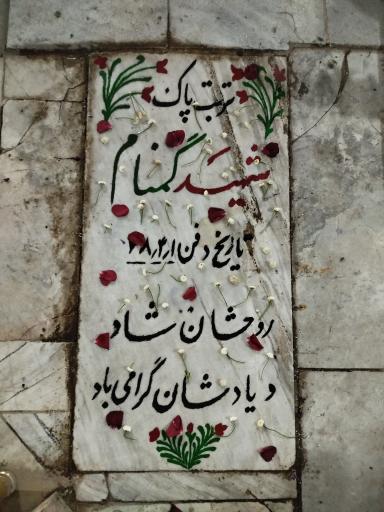 تربت پاک
شهید گمنام
تاریخ دفن
روحشان شاد
و یادشان گرامی باد